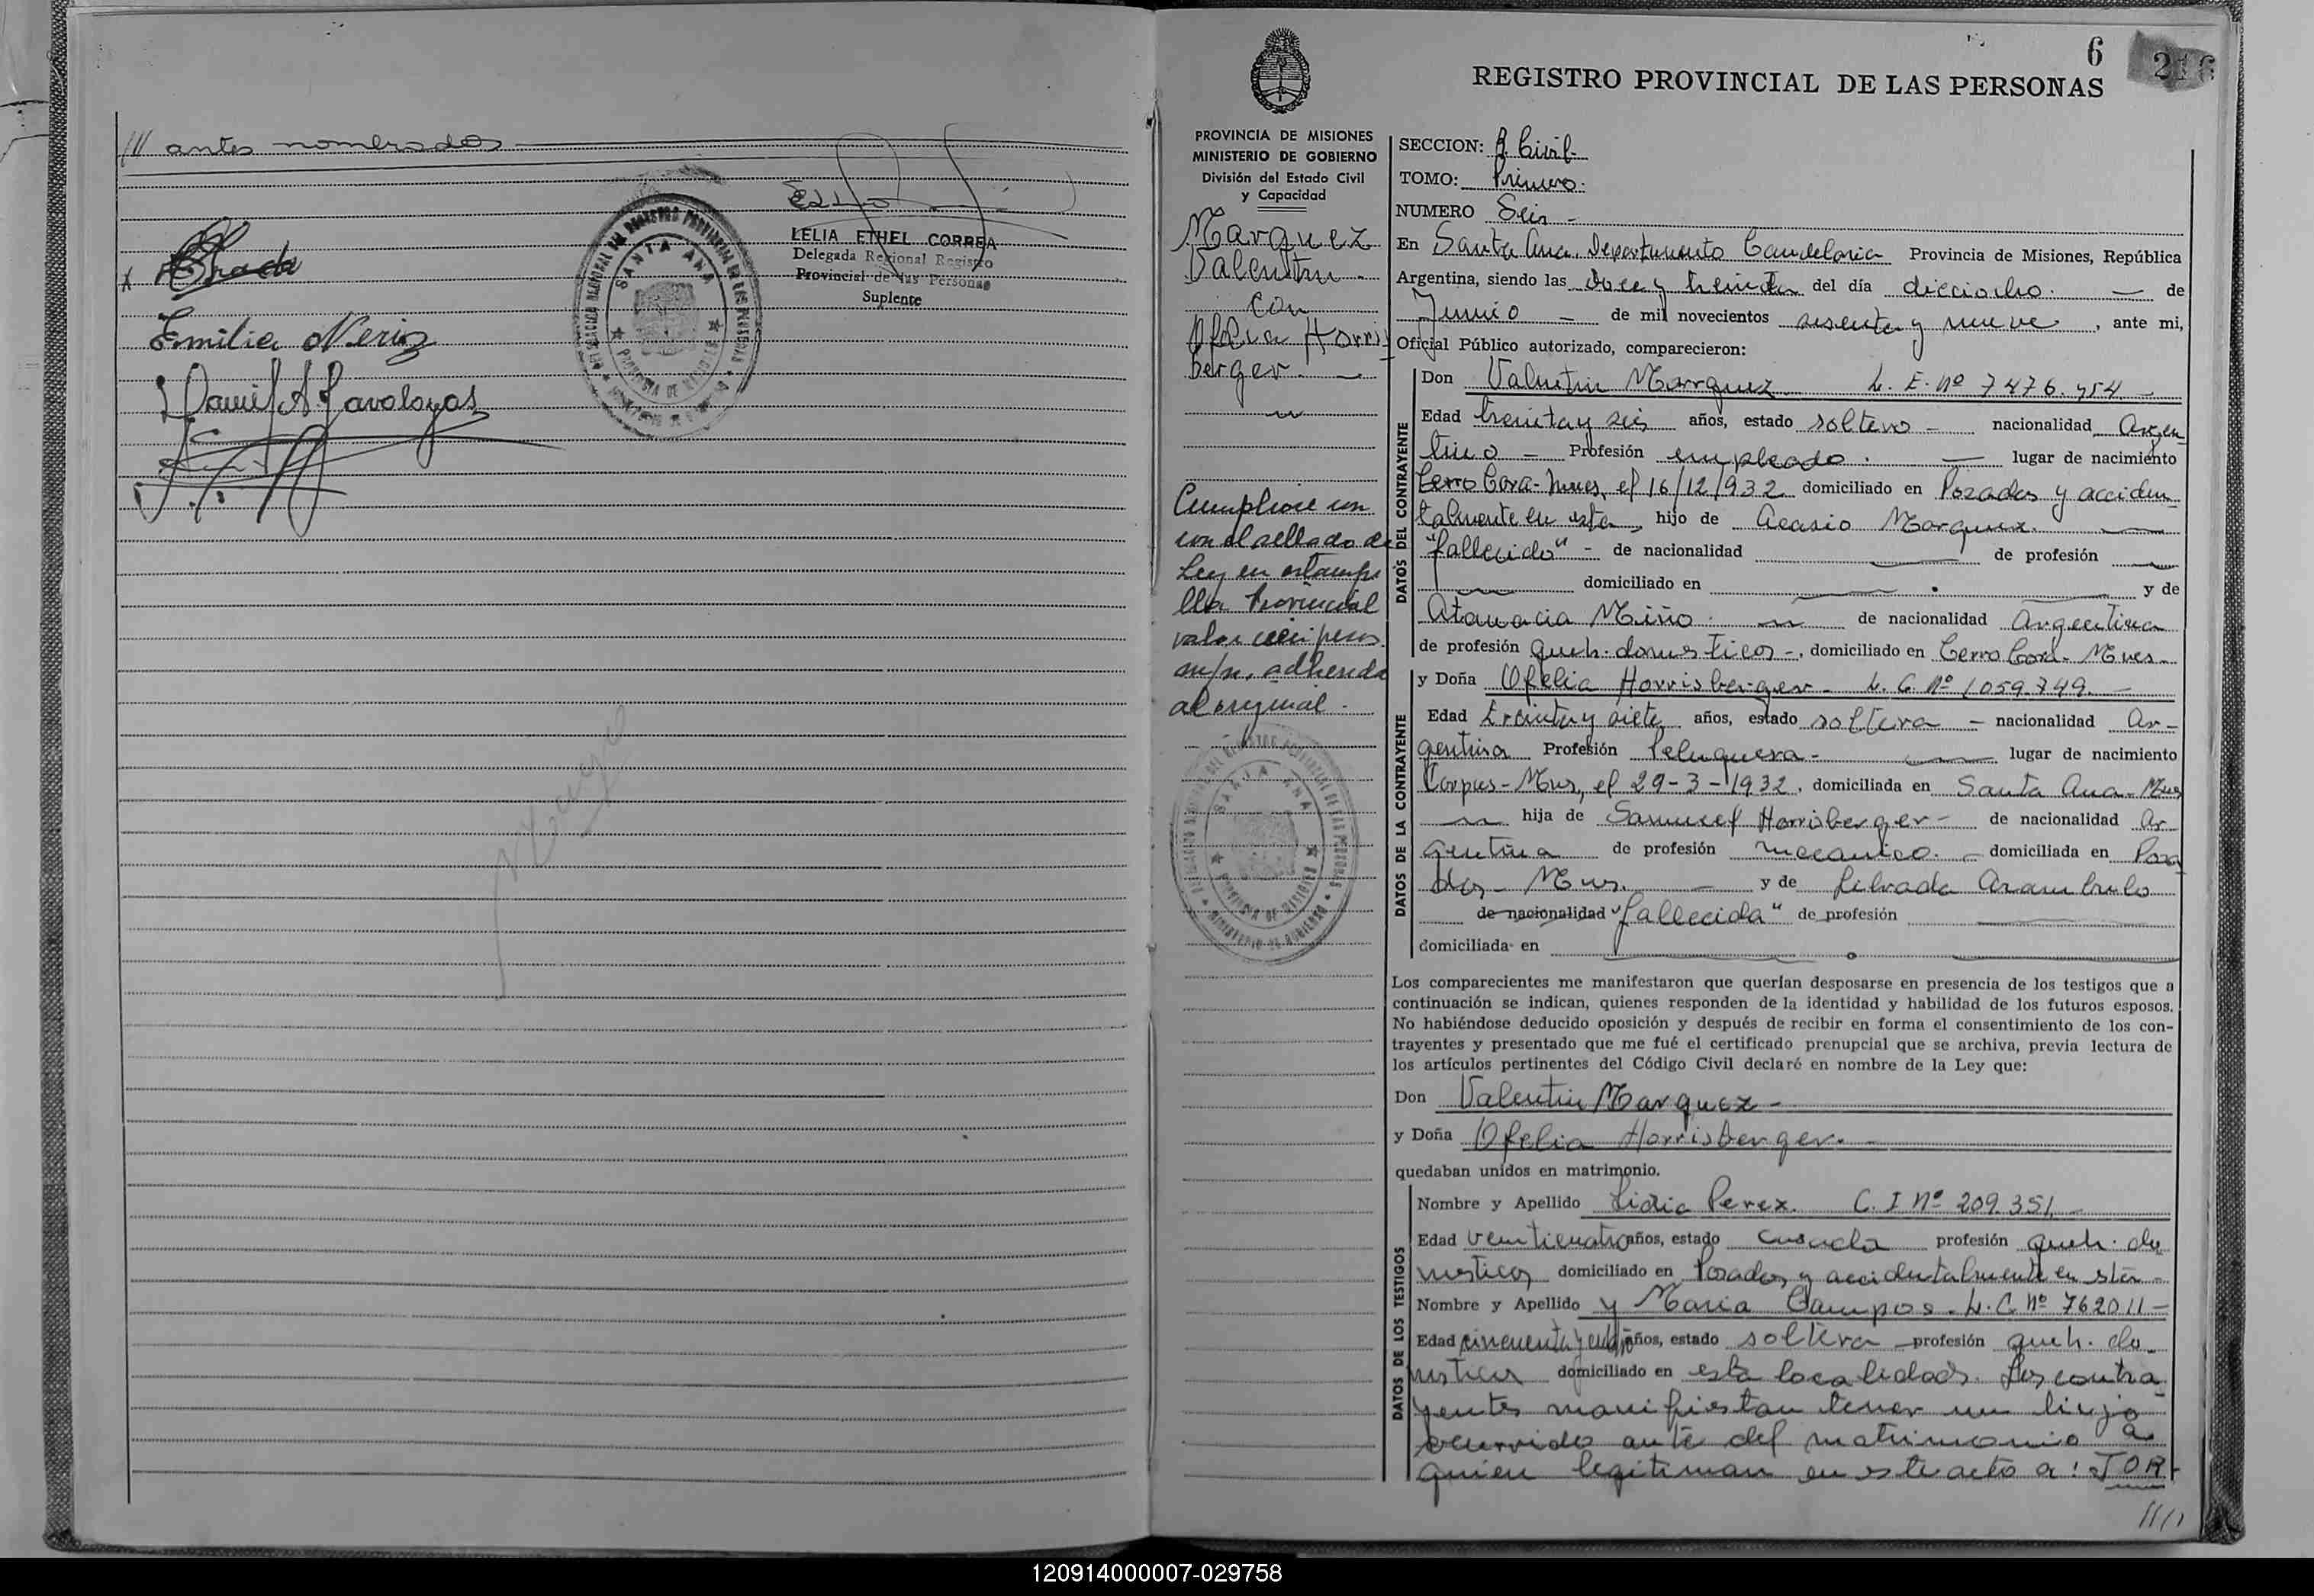 /// antes nombrados
LELIA ETHEL CORREA
Delegada Regional Registro
Provincial de las Personas
Suplente
SANTA ANA
PROVINCIA DE MISIONES
Emilia Neris
6
216
REGISTRO PROVINCIAL DE LAS PERSONAS
PROVINCIA DE MISIONES
MINISTERIO DE GOBIERNO
División del Estado Civil
y Capacidad
Marquez
Valentin
con
Ofelia Horris
berger.
Cumpliose con
con el sellado de
Ley en estampi
lla Provincial
valor cien pesos
m/n. adherida
al original.
SANTA ANA
PROVINCIA DE MISIONES
SECCION: R. Civil-
TOMO: Primero.
NUMERO Seis -
En Santa Ana, Departamento Candelaria Provincia de Misiones, República
Argentina, siendo las doce y treinta del día dieciocho. — de
Junio — de mil novecientos sesenta y nueve, ante mi,
Oficial Público autorizado, comparecieron:
DATOS DEL CONTRAYENTE
Don Valentin Marquez. L. E. Nº 7476.454 —
Edad treinta y seis años, estado soltero — nacionalidad Argen
tino — Profesión empleado. — lugar de nacimiento
Cerro Cora-Mnes, el 16/12/932 domiciliado en Posadas y acciden
talmente en esta, hijo de Acasio Marquez. —
"fallecido" - de nacionalidad — de profesión —
— domiciliado en — y de
Atanacia Miño. — de nacionalidad Argentina
de profesión queh. domesticos -, domiciliado en Cerro Corá- Mnes-
DATOS DE LA CONTRAYENTE
y Doña Ofelia Horrisberger - L. C. Nº 1059.749. —
Edad treinta y siete años, estado soltera — nacionalidad Ar-
gentina Profesión Peluquera- — lugar de nacimiento
Corpus-Mnes, el 29-3-1932, domiciliada en Santa Ana-Mnes
— hija de Samuel Horrisberger- de nacionalidad Ar-
gentina de profesión mecanico. — domiciliada en Posa
das- Mnes. — y de Librada Arambulo
de nacionalidad "fallecida" de profesión —
domiciliada en —
Los comparecientes me manifestaron que querían desposarse en presencia de los testigos que a
continuación se indican, quienes responden de la identidad y habilidad de los futuros esposos.
No habiéndose deducido oposición y después de recibir en forma el consentimiento de los con-
trayentes y presentado que me fué el certificado prenupcial que se archiva, previa lectura de
los artículos pertinentes del Código Civil declaré en nombre de la Ley que:
Don Valentin Marquez -
y Doña Ofelia Horrisberger. -
quedaban unidos en matrimonio.
DATOS DE LOS TESTIGOS
Nombre y Apellido Lidia Perez. C. I Nº 209.351 —
Edad venticuatro años, estado casada profesión queh. do
mesticos domiciliado en Posadas y accidentalmente en sta -
Nombre y Apellido y Maria Campos - L. C. Nº 762011 —
Edad cincuenta y años, estado soltera — profesión queh. do-
mesticos domiciliado en esta localidad. Los contra-
yentes manifiestan tener un hijo
ocurrido ante del matrimonio a
quien legitiman en este acto a: JOR-
////
120914000007-029758